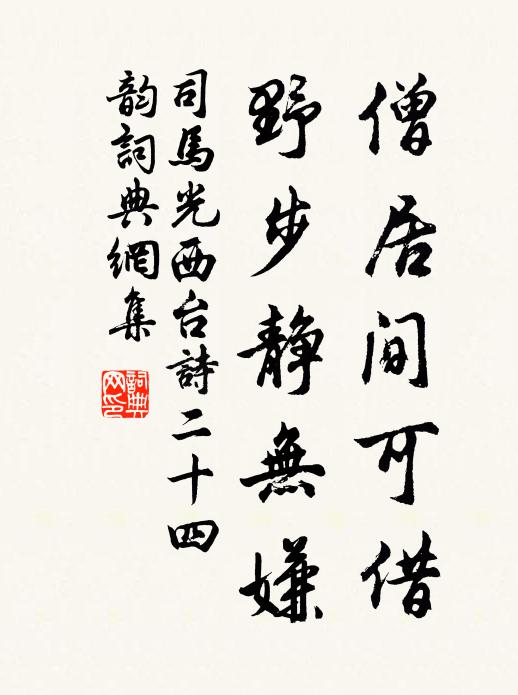 僧居閒可借
野步靜無嫌
司馬光西台詩二十四
韵詞典網集
詞典网印